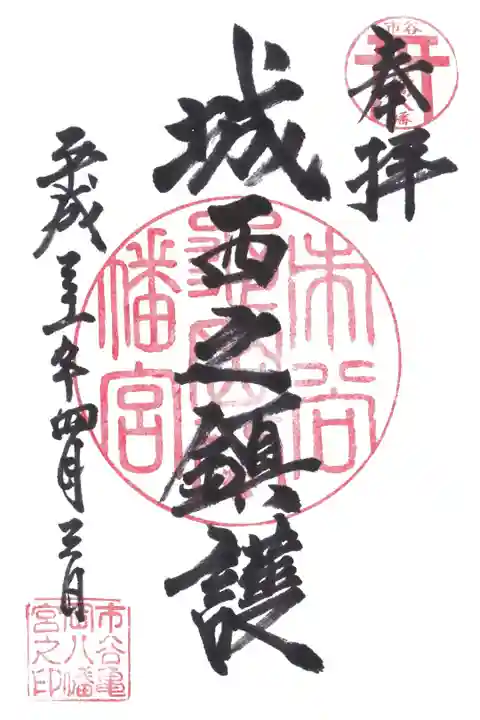 奉拝
城西之鎮護
平成三十一年四月三日
市谷
八幡
市谷
亀岡八
幡宮
市谷亀
岡八幡
宮之印